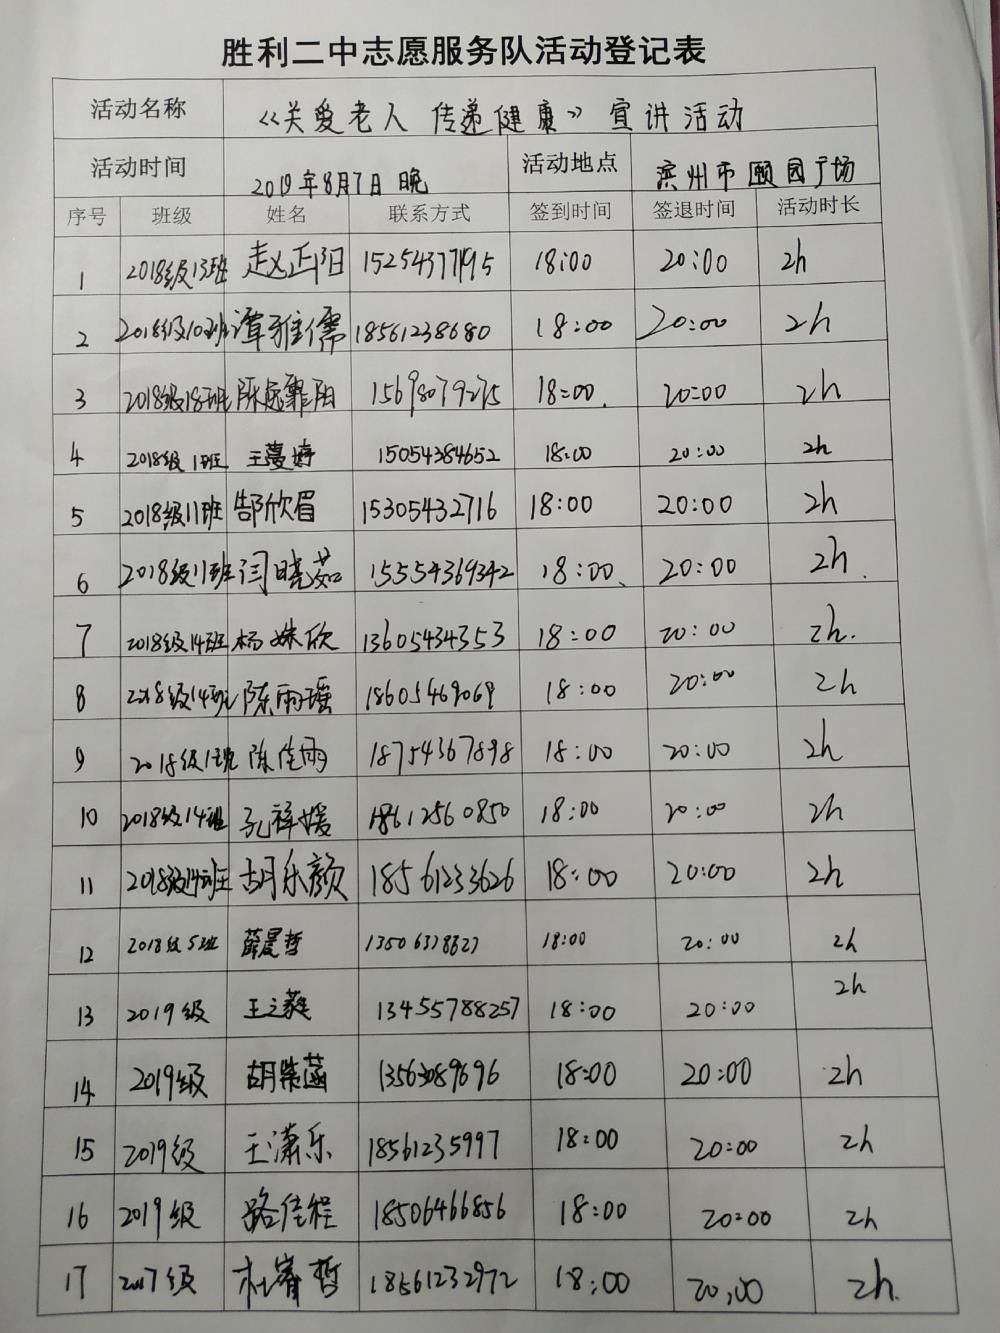 胜利二中志愿服务队活动登记表
活动名称 《关爱老人 传递健康》宣讲活动
活动时间 2019年8月7日 晚 活动地点 滨州市颐园广场
序号 班级 姓名 联系方式 签到时间 签退时间 活动时长
1 2018级13班 赵正阳 15254377195 18:00 20:00 2h
2 2018级10班 谭雅儒 18561238680 18:00 20:00 2h
3 2018级18班 陈 阳 18:00 20:00 2h
4 2018级1班 王蔓婷 15054384652 18:00 20:00 2h
5 2018级11班 郜欣眉 15305432716 18:00 20:00 2h
6 2018级11班 闫晓茹 15554369342 18:00 20:00 2h
7 2018级14班 杨姝欣 13605434353 18:00 20:00 2h.
8 2018级14班 陈雨瑶 18605469069 18:00 20:00 2h
9 2018级1班 陈佳雨 18754367898 18:00 20:00 2h
10 2018级14班 孔祥媛 18612560850 18:00 20:00 2h
11 2018级14班 胡乐颜 18561233626 18:00 20:00 2h
12 2018级5班 薛晨哲 18:00 20:00 2h
13 2019级 王之蕤 13455788257 18:00 20:00 2h
14 2019级 胡紫菡 13563089696 18:00 20:00 2h
15 2019级 王潇乐 18561235997 18:00 20:00 2h
16 2019级 路佳程 18506466856 18:00 20:00 2h
17 2017级 杜睿哲 18561232972 18:00 20:00 2h.